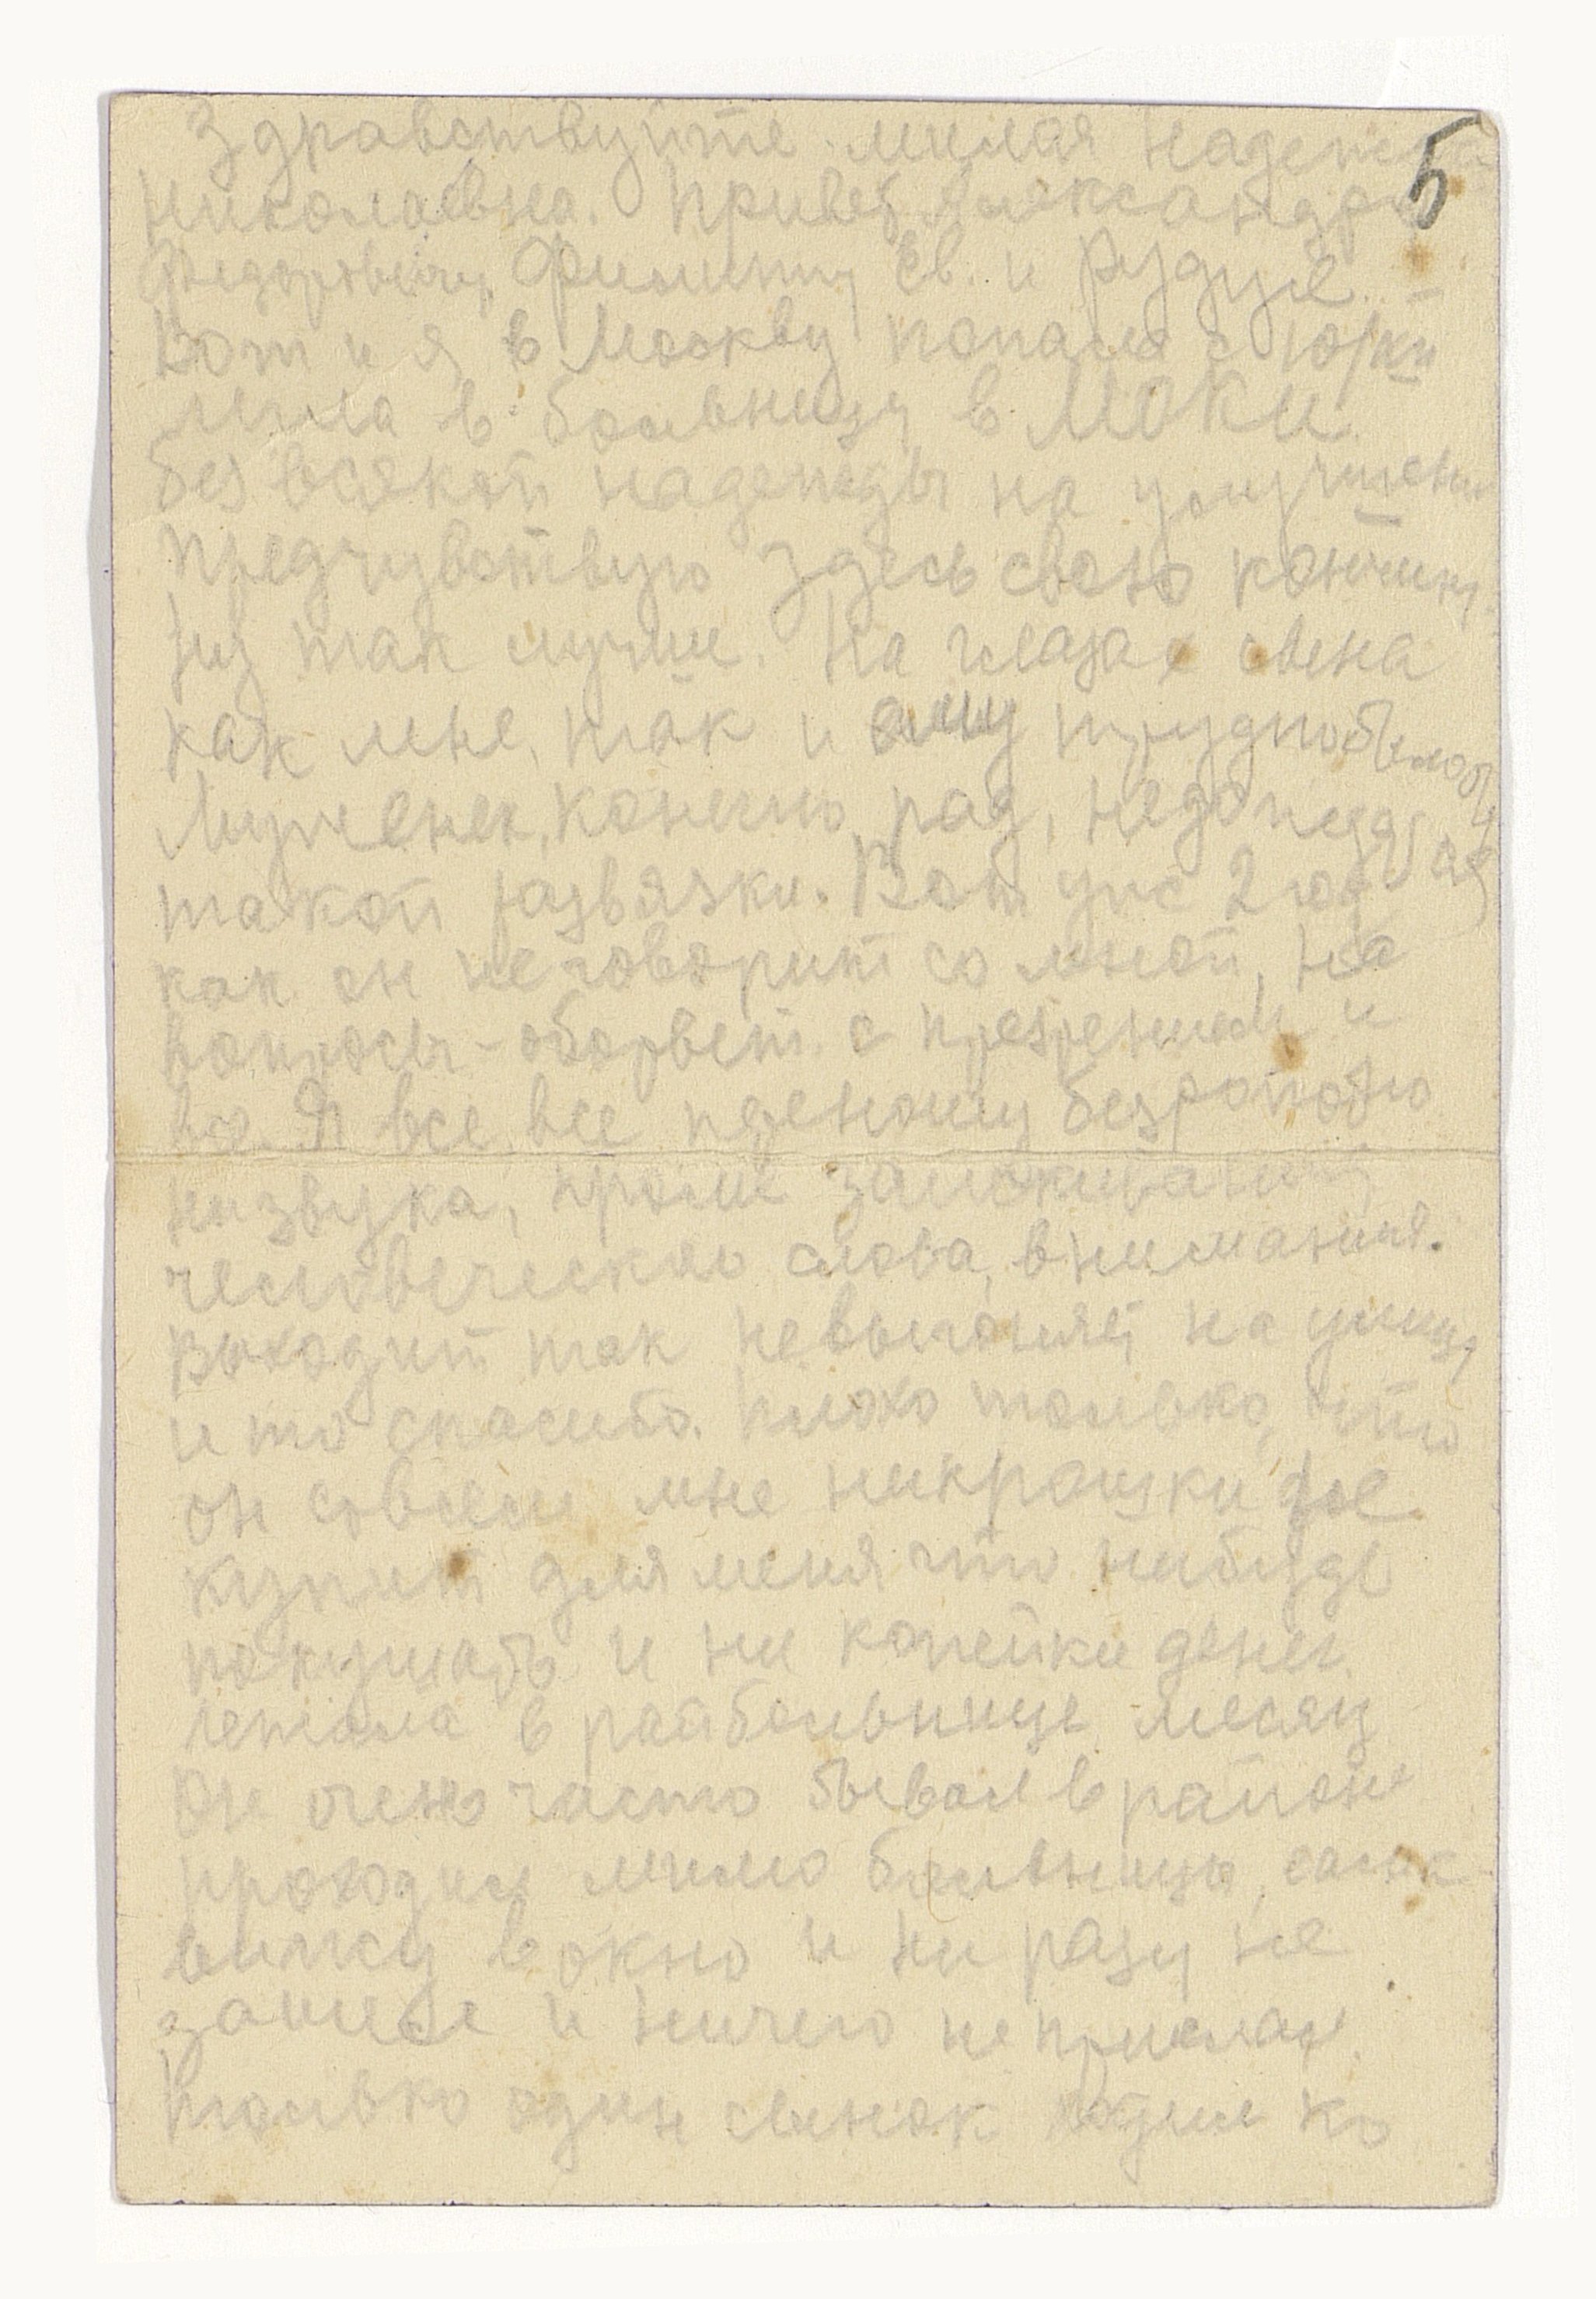 Здравствуйте милая Надежда
Николаевна. Привет Александру
Федоровичу, Филиппу Ев. и
5
Вот и я в Москву попала с
легла в больницу в МОКИ
без всякой надежды на улучшение
предчувствую здесь свою кончину
Ну так лучше. На глазах сына
как мне, так и ему трудно было бы
Муженек, конечно, рад,
такой развязки. Вот уже 2 года
как он не говорит со мной, на
вопросы - оборвет с презрением и
все. Я все все переношу безропотно
ни звука, кроме
человеческого слова, внимания.
Выходит так невыгонят на улицу
и то спасибо. Плохо только, что
он совсем мне никрошки не
купит для меня что нибудь
покушать и ни копейки денег.
лежала в райбольнице месяц
Он очень часто бывал в районе
проходил мимо больницы, сама
вижу в окно и ни разу не
зашел и ничего не прислал.
только один сынок ходил ко